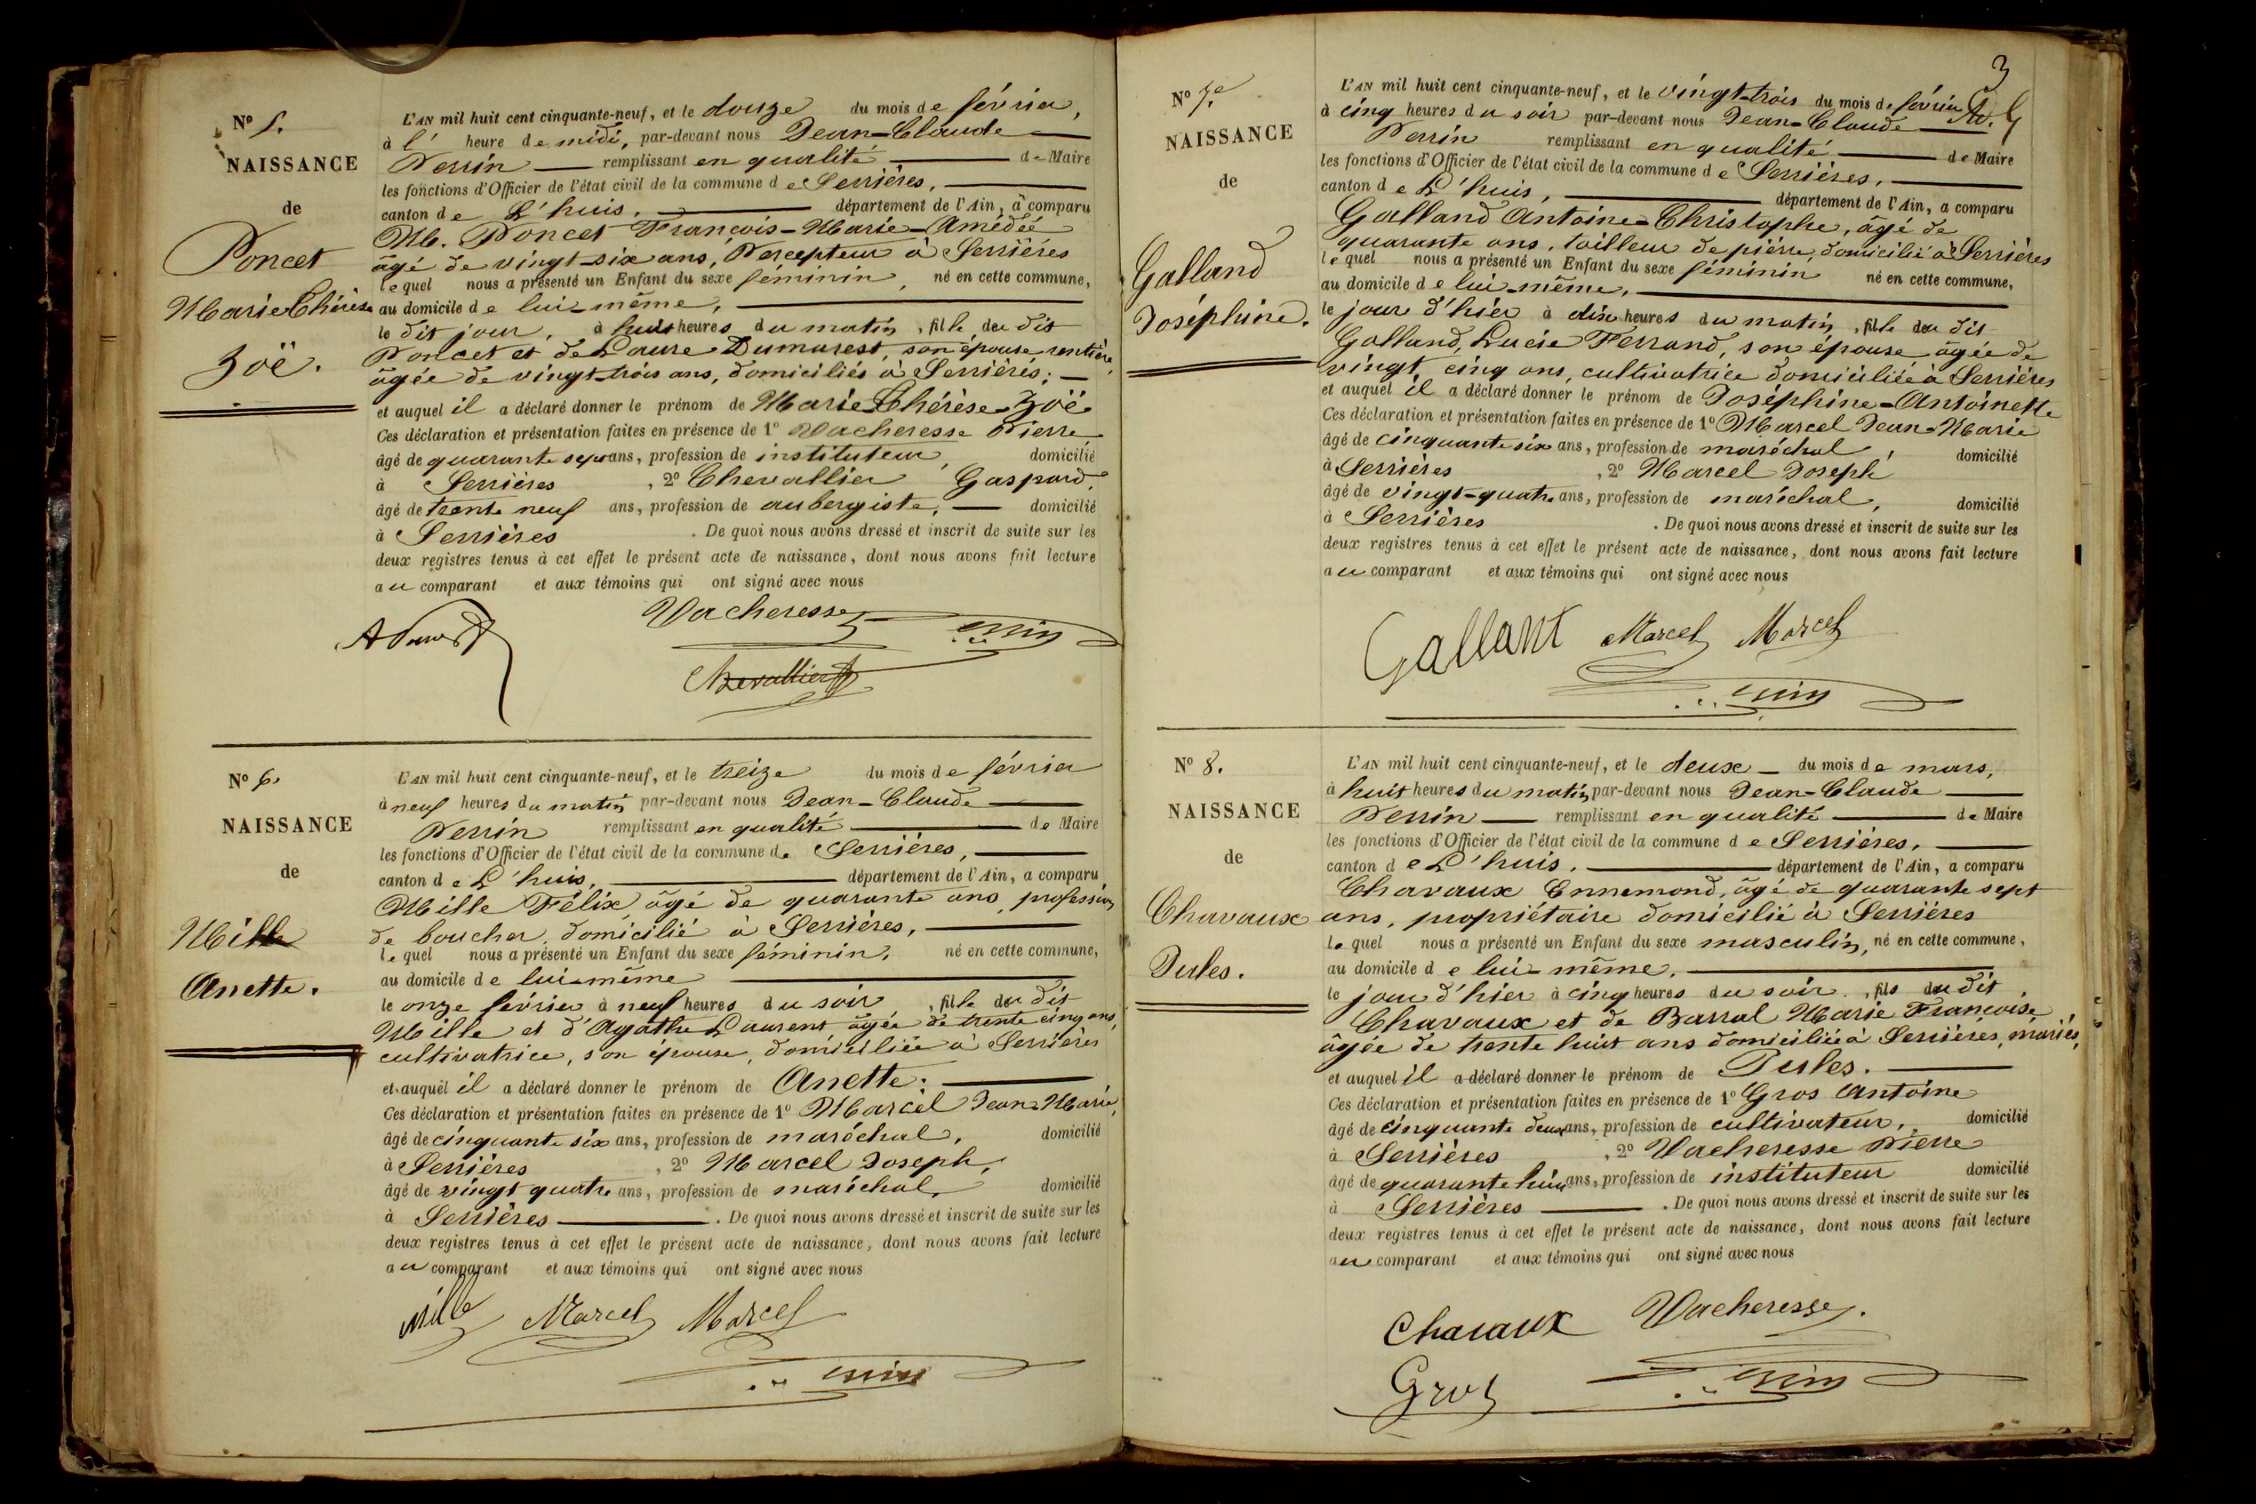 Nº 5.
NAISSANCE
de
Poncet
Marie Thérèse
Zoë.
L'AN mil huit cent cinquante-neuf, et le douze du mois de février,
à l' heure de midi, par-devant nous Jean-Claude
Perrin remplissant en qualité de Maire
les fonctions d'Officier de l'état civil de la commune de Serrières,
canton de L'huis, département de l'Ain, a comparu
M. Poncet François-Marie-Amédée
âgé de vingt-six ans, Percepteur à Serrières
lequel nous a présenté un Enfant du sexe féminin, né en cette commune,
au domicile de lui-même,
le dit jour, à huit heures du matin, fille du dit
Poncet et de Laure Dumarest, son épouse rentière,
âgée de vingt-trois ans, domiciliés à Serrières;
et auquel il a déclaré donner le prénom de Marie-Thérèse-Zoë
Ces déclaration et présentation faites en présence de 1º Vacheresse Pierre
âgé de quarante sept ans, profession de instituteur, domicilié
à Serrières, 2º Chevallier Gaspard,
âgé de trente neuf ans, profession de aubergiste, domicilié
à Serrières. De quoi nous avons dressé et inscrit de suite sur les
deux registres tenus à cet effet le présent acte de naissance, dont nous avons fait lecture
au comparant et aux témoins qui ont signé avec nous
Vacheresse
Chevallier
Nº 6.
NAISSANCE
de
Mille
Anette.
L'AN mil huit cent cinquante-neuf, et le treize du mois de février
à neuf heures du matin par-devant nous Jean-Claude
Perrin remplissant en qualité de Maire
les fonctions d'Officier de l'état civil de la commune de Serrières,
canton de L'huis, département de l'Ain, a comparu
Mille Félix, âgé de quarante ans, profession
de boucher, domicilié à Serrières,
lequel nous a présenté un Enfant du sexe féminin, né en cette commune,
au domicile de lui-même
le onze février à neuf heures du soir, fille du dit
Mille et d'Agathe Laurent âgée de trente cinq ans,
cultivatrice, son épouse, domiciliée à Serrières
et auquel il a déclaré donner le prénom de Anette:
Ces déclaration et présentation faites en présence de 1º Marcel Jean-Marie,
âgé de cinquante six ans, profession de maréchal, domicilié
à Serrières, 2º Marcel Joseph,
âgé de vingt quatre ans, profession de maréchal, domicilié
à Serrières. De quoi nous avons dressé et inscrit de suite sur les
deux registres tenus à cet effet le présent acte de naissance, dont nous avons fait lecture
au comparant et aux témoins qui ont signé avec nous
Mille Marcel Marcel
3
Nº 7.
NAISSANCE
de
Galland
Joséphine.
L'AN mil huit cent cinquante-neuf, et le vingt-trois du mois de février
à cinq heures du soir par-devant nous Jean-Claude
Perrin remplissant en qualité de Maire
les fonctions d'Officier de l'état civil de la commune de Serrières,
canton de L'huis, département de l'Ain, a comparu
Galland Antoine-Christophe, âgé de
quarante ans, tailleur de pierre, domicilié à Serrières
lequel nous a présenté un Enfant du sexe féminin né en cette commune,
au domicile de lui-même,
le jour d'hier à dix heures du matin, fille du dit
Galland, Lucie Ferrand, son épouse âgée de
vingt cinq ans, cultivatrice domiciliée à Serrières
et auquel il a déclaré donner le prénom de Joséphine-Antoinette
Ces déclaration et présentation faites en présence de 1º Marcel Jean-Marie
âgé de cinquante six ans, profession de maréchal, domicilié
à Serrières, 2º Marcel Joseph
âgé de vingt-quatre ans, profession de maréchal, domicilié
à Serrières. De quoi nous avons dressé et inscrit de suite sur les
deux registres tenus à cet effet le présent acte de naissance, dont nous avons fait lecture
au comparant et aux témoins qui ont signé avec nous
Gallant Marcel Marcel
Nº 8.
NAISSANCE
de
Chavaux
Jules.
L'AN mil huit cent cinquante-neuf, et le deux du mois de mars,
à huit heures du matin, par-devant nous Jean-Claude
Perrin remplissant en qualité de Maire
les fonctions d'Officier de l'état civil de la commune de Serrières,
canton de L'huis, département de l'Ain, a comparu
Chavaux Ennemond, âgé de quarante sept
ans, propriétaire domicilié à Serrières
lequel nous a présenté un Enfant du sexe masculin, né en cette commune,
au domicile de lui-même,
le jour d'hier à cinq heures du soir, fils du dit
Chavaux et de Barral Marie Françoise
âgée de trente huit ans domiciliée à Serrières, mariés,
et auquel il a déclaré donner le prénom de Jules.
Ces déclaration et présentation faites en présence de 1º Gros Antoine
âgé de cinquante deux ans, profession de cultivateur, domicilié
à Serrières, 2º Vacheresse Pierre
âgé de quarante huit ans, profession de instituteur domicilié
à Serrières. De quoi nous avons dressé et inscrit de suite sur les
deux registres tenus à cet effet le présent acte de naissance, dont nous avons fait lecture
au comparant et aux témoins qui ont signé avec nous
Chavaux Vacheresse.
Gros